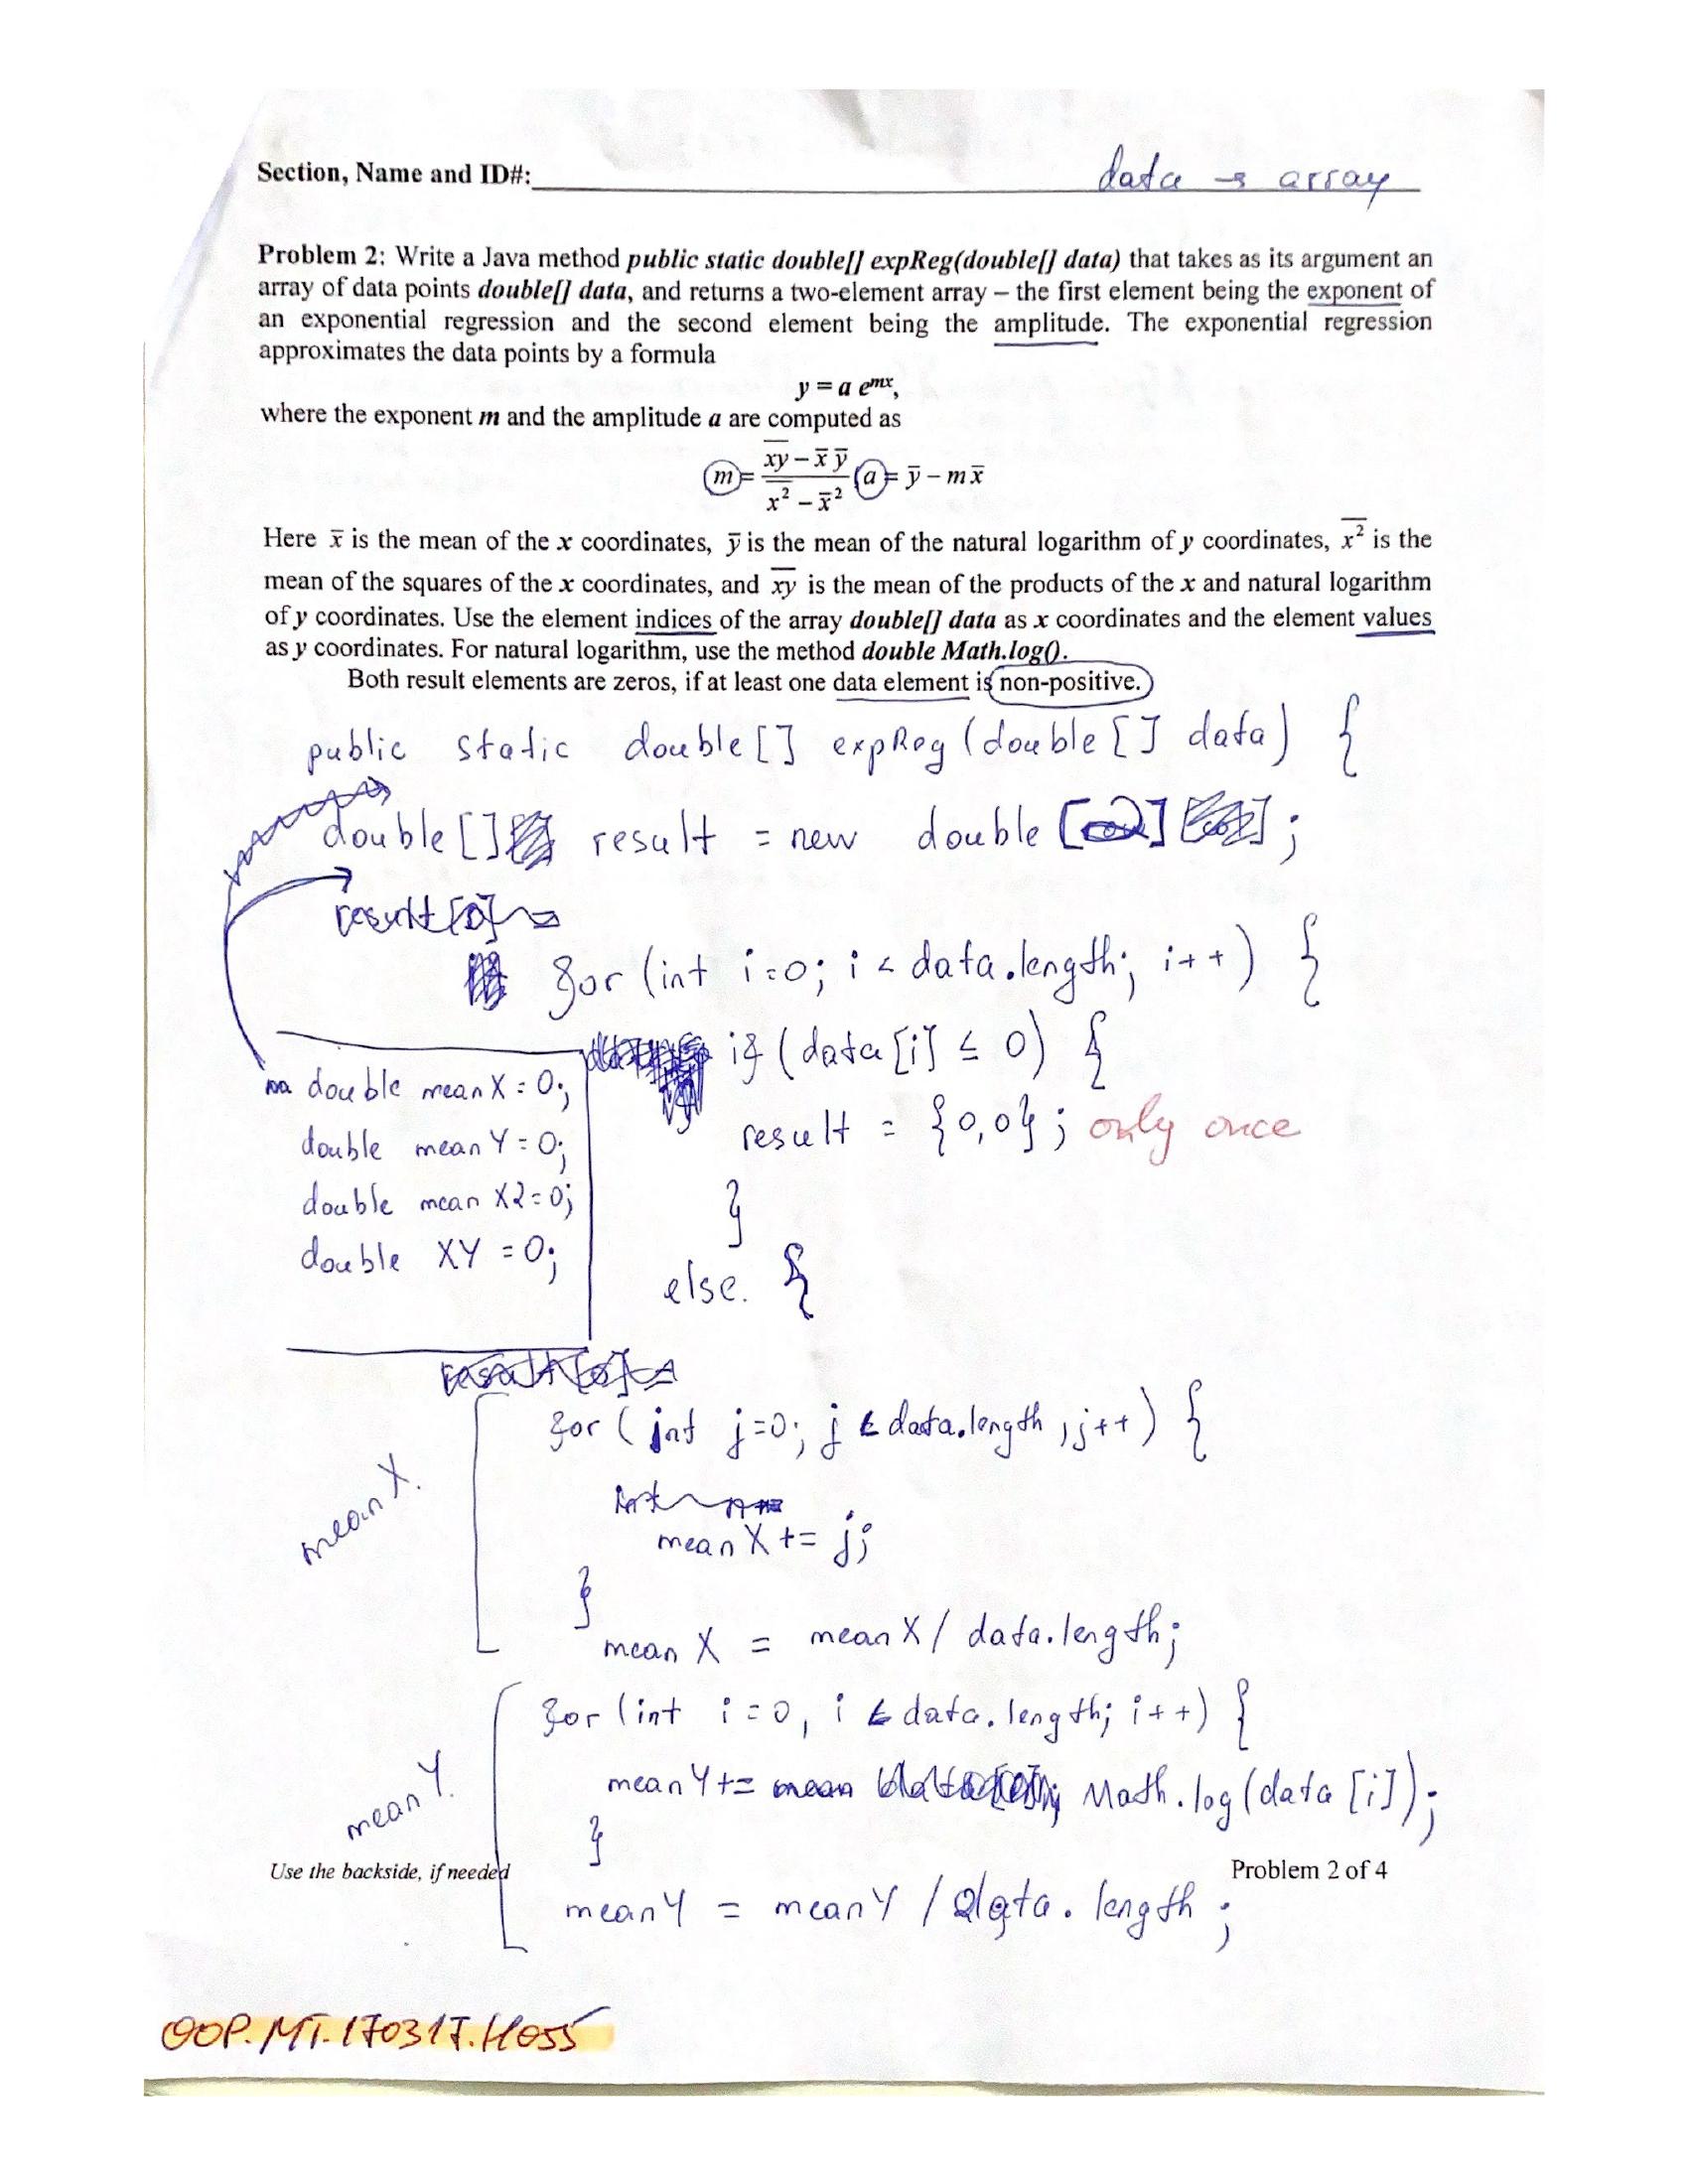 Section, Name and ID#: data → array
Problem 2: Write a Java method public static double[] expReg(double[] data) that takes as its argument an
array of data points double[] data, and returns a two-element array – the first element being the exponent of
an exponential regression and the second element being the amplitude. The exponential regression
approximates the data points by a formula
y = a e^{mx},
where the exponent m and the amplitude a are computed as
m = \frac{\overline{xy} - \bar{x} \bar{y}}{\overline{x^2} - \bar{x}^2} a = \bar{y} - m\bar{x}
Here x̄ is the mean of the x coordinates, ȳ is the mean of the natural logarithm of y coordinates, \overline{x^2} is the
mean of the squares of the x coordinates, and \overline{xy} is the mean of the products of the x and natural logarithm
of y coordinates. Use the element indices of the array double[] data as x coordinates and the element values
as y coordinates. For natural logarithm, use the method double Math.log().
Both result elements are zeros, if at least one data element is non-positive.
public static double[] expReg (double [] data) {
double [] result = new double [2];
for (int i=0; i < data.length; i++) {
if (data[i] ≤ 0) {
result = {0,0}; only once
}
else {
double meanX = 0;
double meanY = 0;
double meanX2=0;
double XY = 0;
meanX.
for (int j=0; j < data.length; j++) {
meanX += j;
}
meanX = meanX / data.length;
meanY.
for (int i=0, i < data.length; i++) {
meanY += Math.log(data[i]);
}
Use the backside, if needed Problem 2 of 4
meanY = meanY / data.length;
OOP.MT.170317.H055